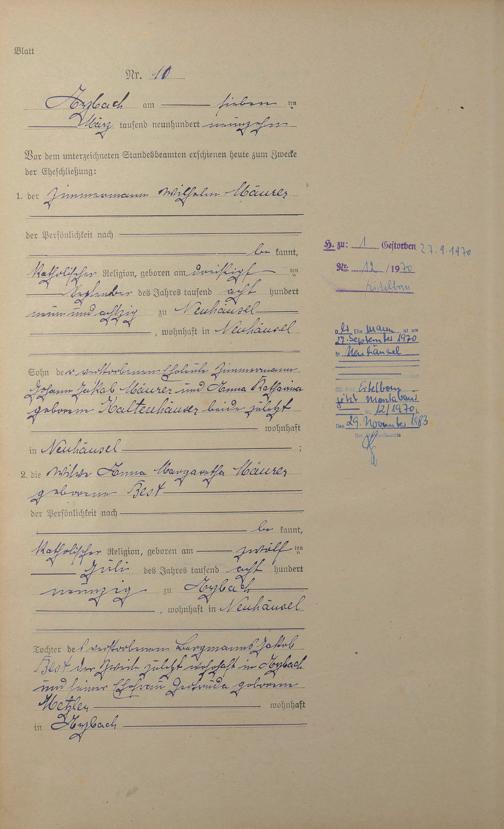 Blatt
Nr. 10
Arzbach am sieben ten
März tausend neunhundert neunzehn
Vor dem unterzeichneten Standesbeamten erschienen heute zum Zwecke
der Eheschließung:
1. der Zimmermann Wilhelm Mäurer
der Persönlichkeit nach
be kannt,
katholischer Religion, geboren am dreißigst ten
September des Jahres tausend acht hundert
neun und achtzig zu Neuhäusel
, wohnhaft in Neuhäusel
Sohn der verstorbenen Eheleute Zimmermann
Johann Jakob Mäurer und Anna Katharina
geborenen Kaltenhäuser beide zuletzt
wohnhaft
in Neuhäusel ;
2. die Witwe Anna Margaretha Mäurer
geborene Best
der Persönlichkeit nach
be kannt,
katholischer Religion, geboren am zwölf ten
Juli des Jahres tausend acht hundert
neunzig zu Arzbach
, wohnhaft in Neuhäusel
Tochter des verstorbenen Bergmanns Jakob
Best der Zweite zuletzt wohnhaft in Arzbach
und seiner Ehefrau Gertruda geborene
Metzler wohnhaft
in Arzbach
H. zu: 1 Gestorben 27.9.1970
Nr. 12 /1970
Eitelborn
Der Mann ist am
27. September 1970
in Neuhäusel
Eitelborn
jetzt Montabaur
12/1970.
Den 29. November 1983